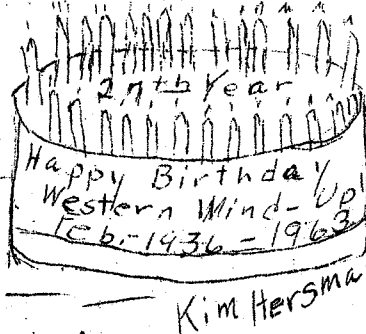 27th Year
Happy Birthday
Western Wind-Up!
Feb.-1936-1963
Kim Hersma